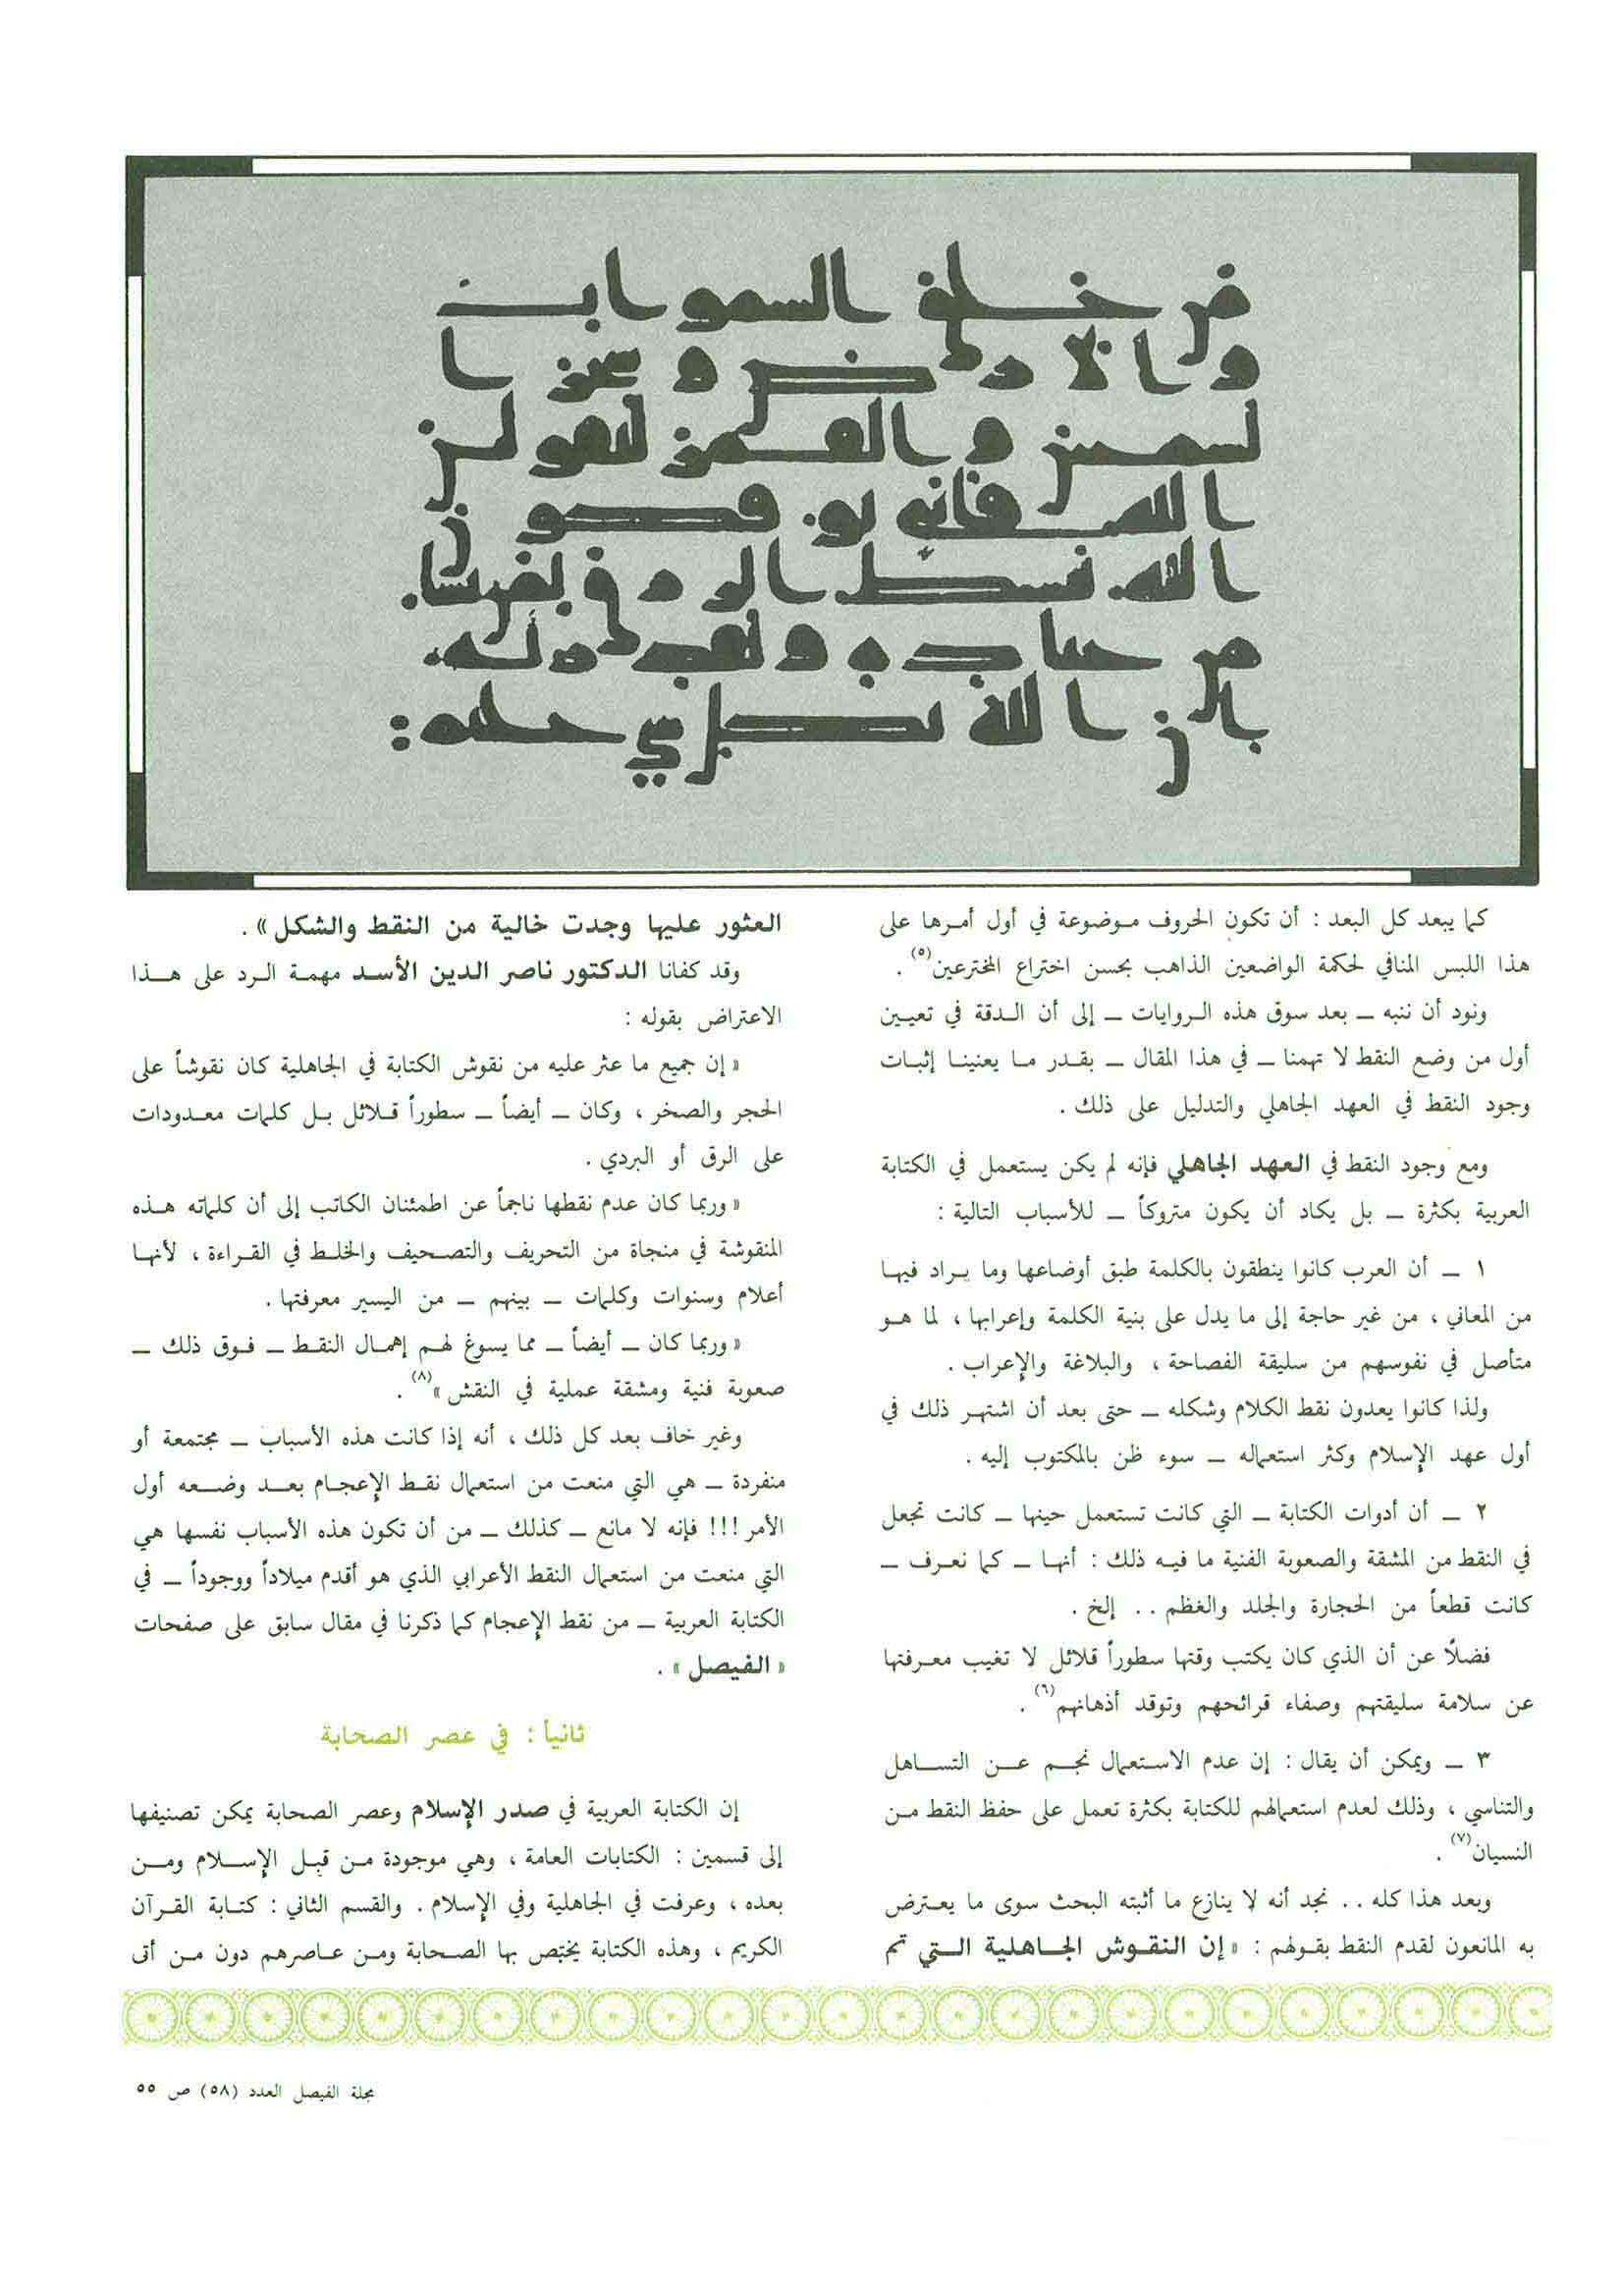 من خلق السموات
والارض وسخر ا
لشمس والقمر ليقولن
الله فانى يوفكون
الله يبسط الرزق لمن يشا
من عباده ويقدر له
ان الله بكل شي عليم
كما يبعد كل البعد : أن تكون الحروف موضوعة في أول أمرها على
هذا اللبس المنافي لحكمة الواضعين الذاهب بحسن اختراع المخترعين(٥) .
ونود أن ننبه ـ بعد سوق هذه الروايات ـ إلى أن الدقة في تعيين
أول من وضع النقط لا تهمنا ـ في هذا المقال ـ بقدر ما يعنينا إثبات
وجود النقط في العهد الجاهلي والتدليل على ذلك .
ومع وجود النقط في العهد الجاهلي فإنه لم يكن يستعمل في الكتابة
العربية بكثرة ـ بل يكاد أن يكون متروكاً ـ للأسباب التالية :
١ ـ أن العرب كانوا ينطقون بالكلمة طبق أوضاعها وما يراد فيها
من المعاني ، من غير حاجة إلى ما يدل على بنية الكلمة وإعرابها ، لما هو
متأصل في نفوسهم من سليقة الفصاحة ، والبلاغة والإعراب .
ولذا كانوا يعدون نقط الكلام وشكله ـ حتى بعد أن اشتهر ذلك في
أول عهد الإسلام وكثر استعماله ـ سوء ظن بالمكتوب إليه .
٢ ـ أن أدوات الكتابة ـ التي كانت تستعمل حينها ـ كانت تجعل
في النقط من المشقة والصعوبة الفنية ما فيه ذلك : أنها ـ كما نعرف ـ
كانت قطعاً من الحجارة والجلد والغظم .. إلخ .
فضلاً عن أن الذي كان يكتب وقتها سطوراً قلائل لا تغيب معرفتها
عن سلامة سليقتهم وصفاء قرائحهم وتوقد أذهانهم(٦) .
٣ ـ ويمكن أن يقال : إن عدم الاستعمال نجم عن التساهل
والتناسي ، وذلك لعدم استعمالهم للكتابة بكثرة تعمل على حفظ النقط من
النسيان(٧) .
وبعد هذا كله .. نجد أنه لا ينازع ما أثبته البحث سوى ما يعترض
به المانعون لقدم النقط بقولهم : « إن النقوش الجاهلية التي تم
العثور عليها وجدت خالية من النقط والشكل » .
وقد كفانا الدكتور ناصر الدين الأسد مهمة الرد على هذا
الاعتراض بقوله :
« إن جميع ما عثر عليه من نقوش الكتابة في الجاهلية كان نقوشاً على
الحجر والصخر ، وكان ـ أيضاً ـ سطوراً قلائل بل كلمات معدودات
على الرق أو البردي .
« وربما كان عدم نقطها ناجماً عن اطمئنان الكاتب إلى أن كلماته هذه
المنقوشة في منجاة من التحريف والتصحيف والخلط في القراءة ، لأنها
أعلام وسنوات وكلمات ـ بينهم ـ من اليسير معرفتها .
« وربما كان ـ أيضاً ـ مما يسوغ لهم إهمال النقط ـ فوق ذلك ـ
صعوبة فنية ومشقة عملية في النقش »(٨) .
وغير خاف بعد كل ذلك ، أنه إذا كانت هذه الأسباب ـ مجتمعة أو
منفردة ـ هي التي منعت من استعمال نقط الإعجام بعد وضعه أول
الأمر !!! فإنه لا مانع ـ كذلك ـ من أن تكون هذه الأسباب نفسها هي
التي منعت من استعمال النقط الأعرابي الذي هو أقدم ميلاداً ووجوداً ـ في
الكتابة العربية ـ من نقط الإعجام كما ذكرنا في مقال سابق على صفحات
« الفيصل » .
ثانياً : في عصر الصحابة
إن الكتابة العربية في صدر الإسلام وعصر الصحابة يمكن تصنيفها
إلى قسمين : الكتابات العامة ، وهي موجودة من قبل الإسلام ومن
بعده ، وعرفت في الجاهلية وفي الإسلام . والقسم الثاني : كتابة القرآن
الكريم ، وهذه الكتابة يختص بها الصحابة ومن عاصرهم دون من أتى
مجلة الفيصل العدد (٥٨) ص ٥٥